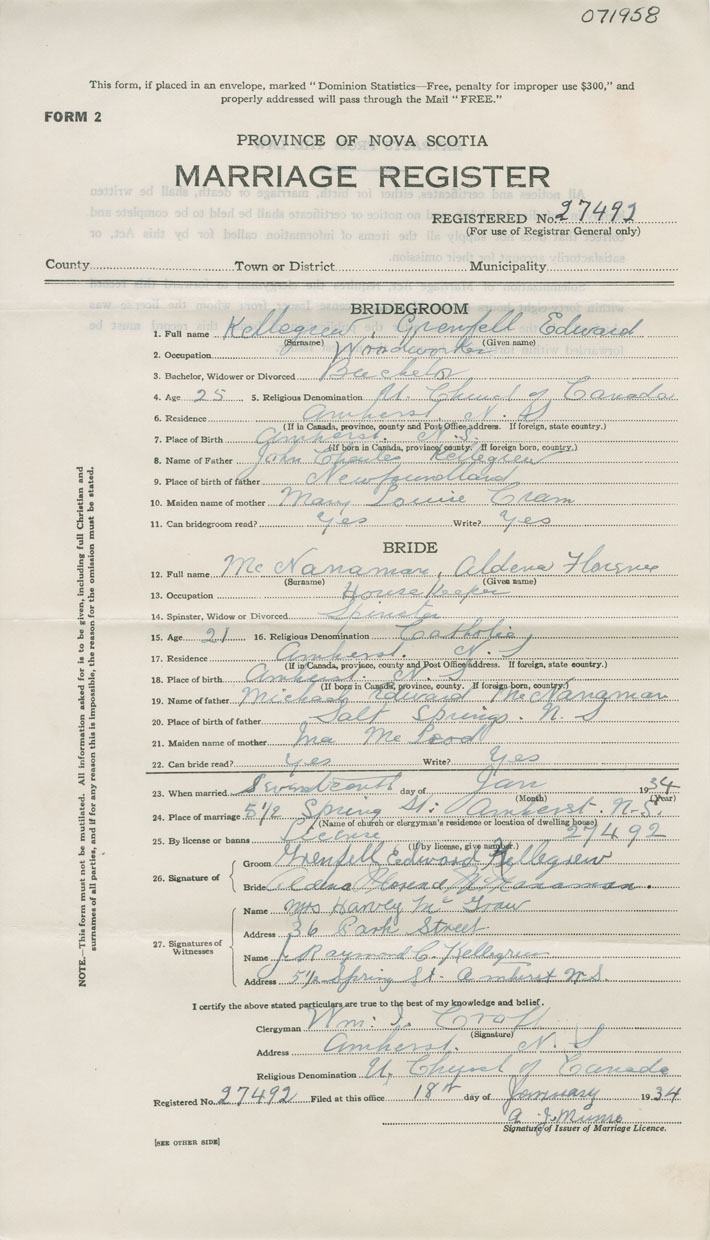 071958
This form, if placed in an envelope, marked "Dominion Statistics—Free, penalty for improper use $300," and
properly addressed will pass through the Mail "FREE."
FORM 2
PROVINCE OF NOVA SCOTIA
MARRIAGE REGISTER
REGISTERED No. 27492
(For use of Registrar General only)
County Town or District Municipality
BRIDEGROOM
1. Full name Kellegrew, Grenfell Edward
(Surname) (Given name)
2. Occupation Woodworker
3. Bachelor, Widower or Divorced Bachelor
4. Age 25 5. Religious Denomination U. Church of Canada
6. Residence Amherst, N. S
(If in Canada, province, county and Post Office address. If foreign, state country.)
7. Place of Birth Amherst. N. S.
(If born in Canada, province, county. If foreign born, country.)
8. Name of Father John Charles Kellegrew
9. Place of birth of father Newfoundland
10. Maiden name of mother Mary Louise Cram
11. Can bridegroom read? Yes Write? Yes
BRIDE
12. Full name McNanaman, Aldena Florence
(Surname) (Given name)
13. Occupation House Keeper
14. Spinster, Widow or Divorced Spinster
15. Age 21 16. Religious Denomination Catholic
17. Residence Amherst. N. S
(If in Canada, province, county and Post Office address. If foreign, state country.)
18. Place of birth Amherst. N. S
(If born in Canada, province, county. If foreign born, country.)
19. Name of father Michael Edward McNanaman
20. Place of birth of father Salt Springs. N. S
21. Maiden name of mother Ina McLeod
22. Can bride read? Yes Write? Yes
23. When married Seventeenth day of Jan 1934
(Month) (Year)
24. Place of marriage 51/2 Spring St: Amherst. N.S.
(Name of church or clergyman's residence or location of dwelling house)
25. By license or banns 27492
(If by license, give number.)
26. Signature of
Groom Grenfell Edward Kellegrew
Bride Aldena Florence McNanaman.
27. Signatures of Witnesses
Name Mrs Harvey McGraw
Address 36 Park Street
Name Raymond C. Kellegrew
Address 51/2 Spring St. Amherst N.S.
I certify the above stated particulars are true to the best of my knowledge and belief.
Clergyman Wm. I. Croft
(Signature)
Address Amherst. N. S
Religious Denomination U. Church of Canada
Registered No. 27492 Filed at this office 18th day of January 1934
A. J. Munro
Signature of Issuer of Marriage Licence.
[SEE OTHER SIDE]
NOTE.—This form must not be mutilated. All information asked for is to be given, including full Christian and
surnames of all parties, and if for any reason this is impossible, the reason for the omission must be stated.